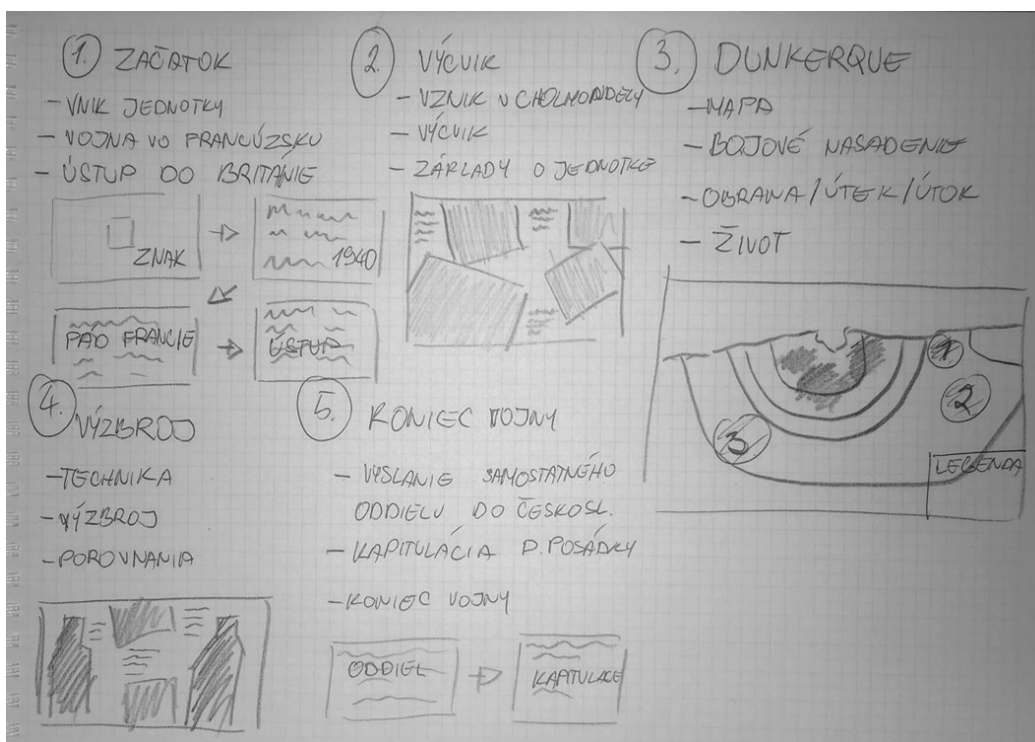 1. ZAČATOK
- VNIK JEDNOTKY
- VOJNA VO FRANCÚZSKU
- ÚSTUP DO BRITÁNIE
ZNAK
1940
PÁD FRANCIE
ÚSTUP
2. VÝCVIK
- VZNIK V CHOLMONDELY
- VÝCVIK
- ZÁKLADY O JEDNOTKE
3. DUNKERQUE
- MAPA
- BOJOVÉ NASADENIE
- OBRANA/ÚTEK/ÚTOK
- ŽIVOT
1
2
3
LEGENDA
4. VÝZBROJ
- TECHNIKA
- VÝZBROJ
- POROVNANIA
5. KONIEC VOJNY
- VYSLANIE SAMOSTATNÉHO
ODDIELU DO ČESKOSL.
- KAPITULÁCIA D. POSÁDKY
- KONIEC VOJNY
ODDIEL
KAPITULACE